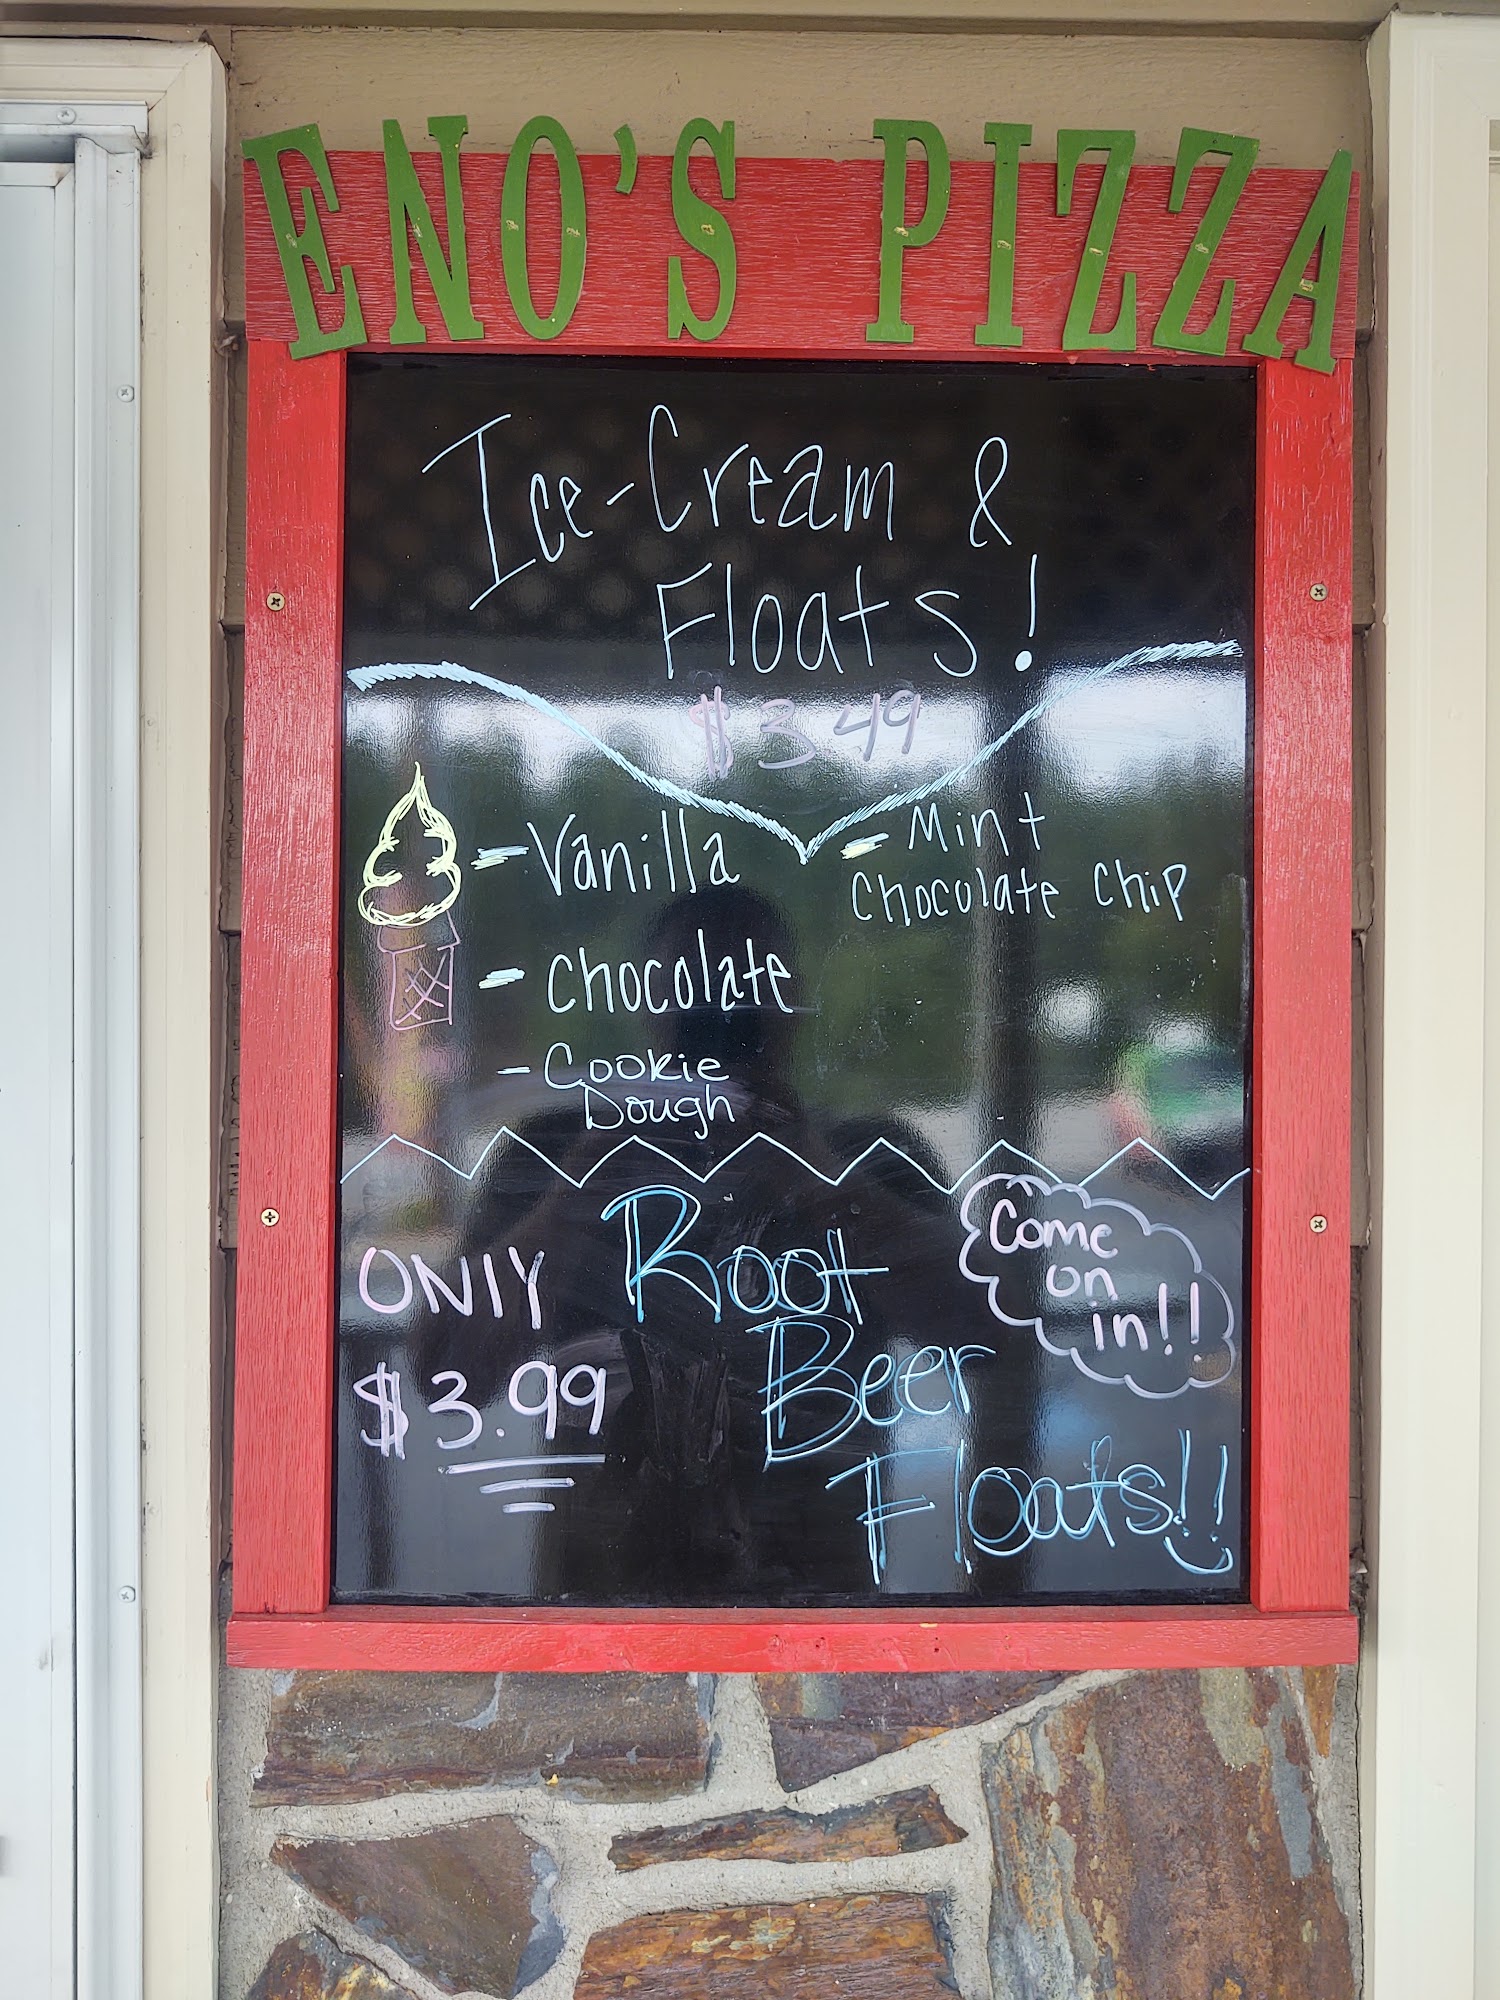 ENO'S PIZZA
Ice-Cream &
Floats!
$3.49
- Vanilla
- Mint
Chocolate Chip
- Chocolate
- Cookie
Dough
ONlY
$3.99
Root
Beer
Floats!!
Come
on
in!!